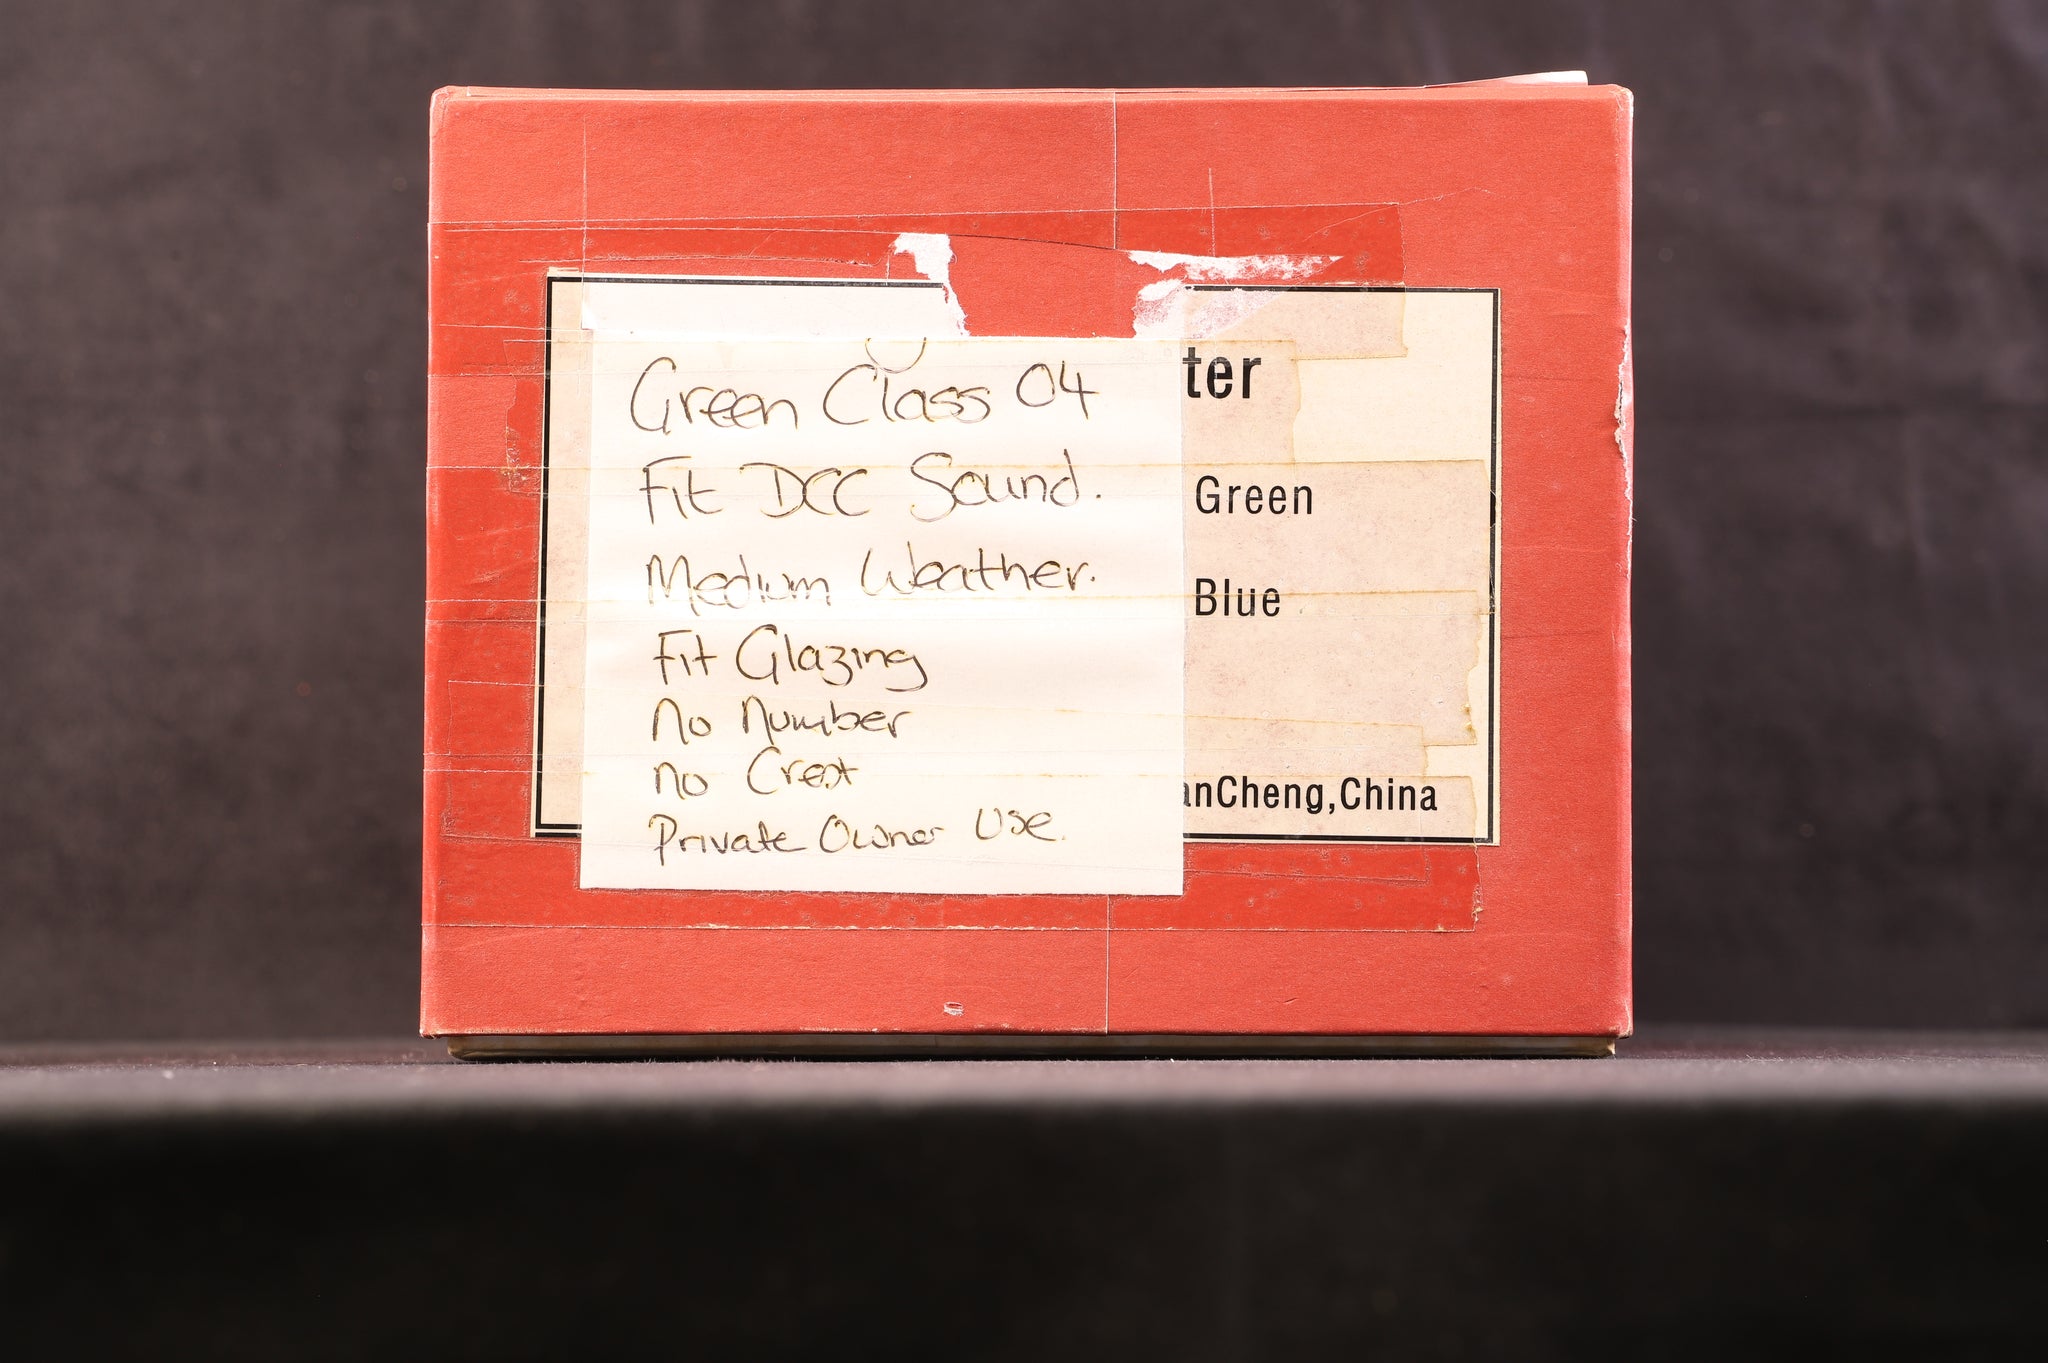 Green Class 04
Fit DCC Sound.
Medium Weather.
Fit Glazing
No Number
No Crest
Private Owner Use.
ter
Green
Blue
anCheng,China